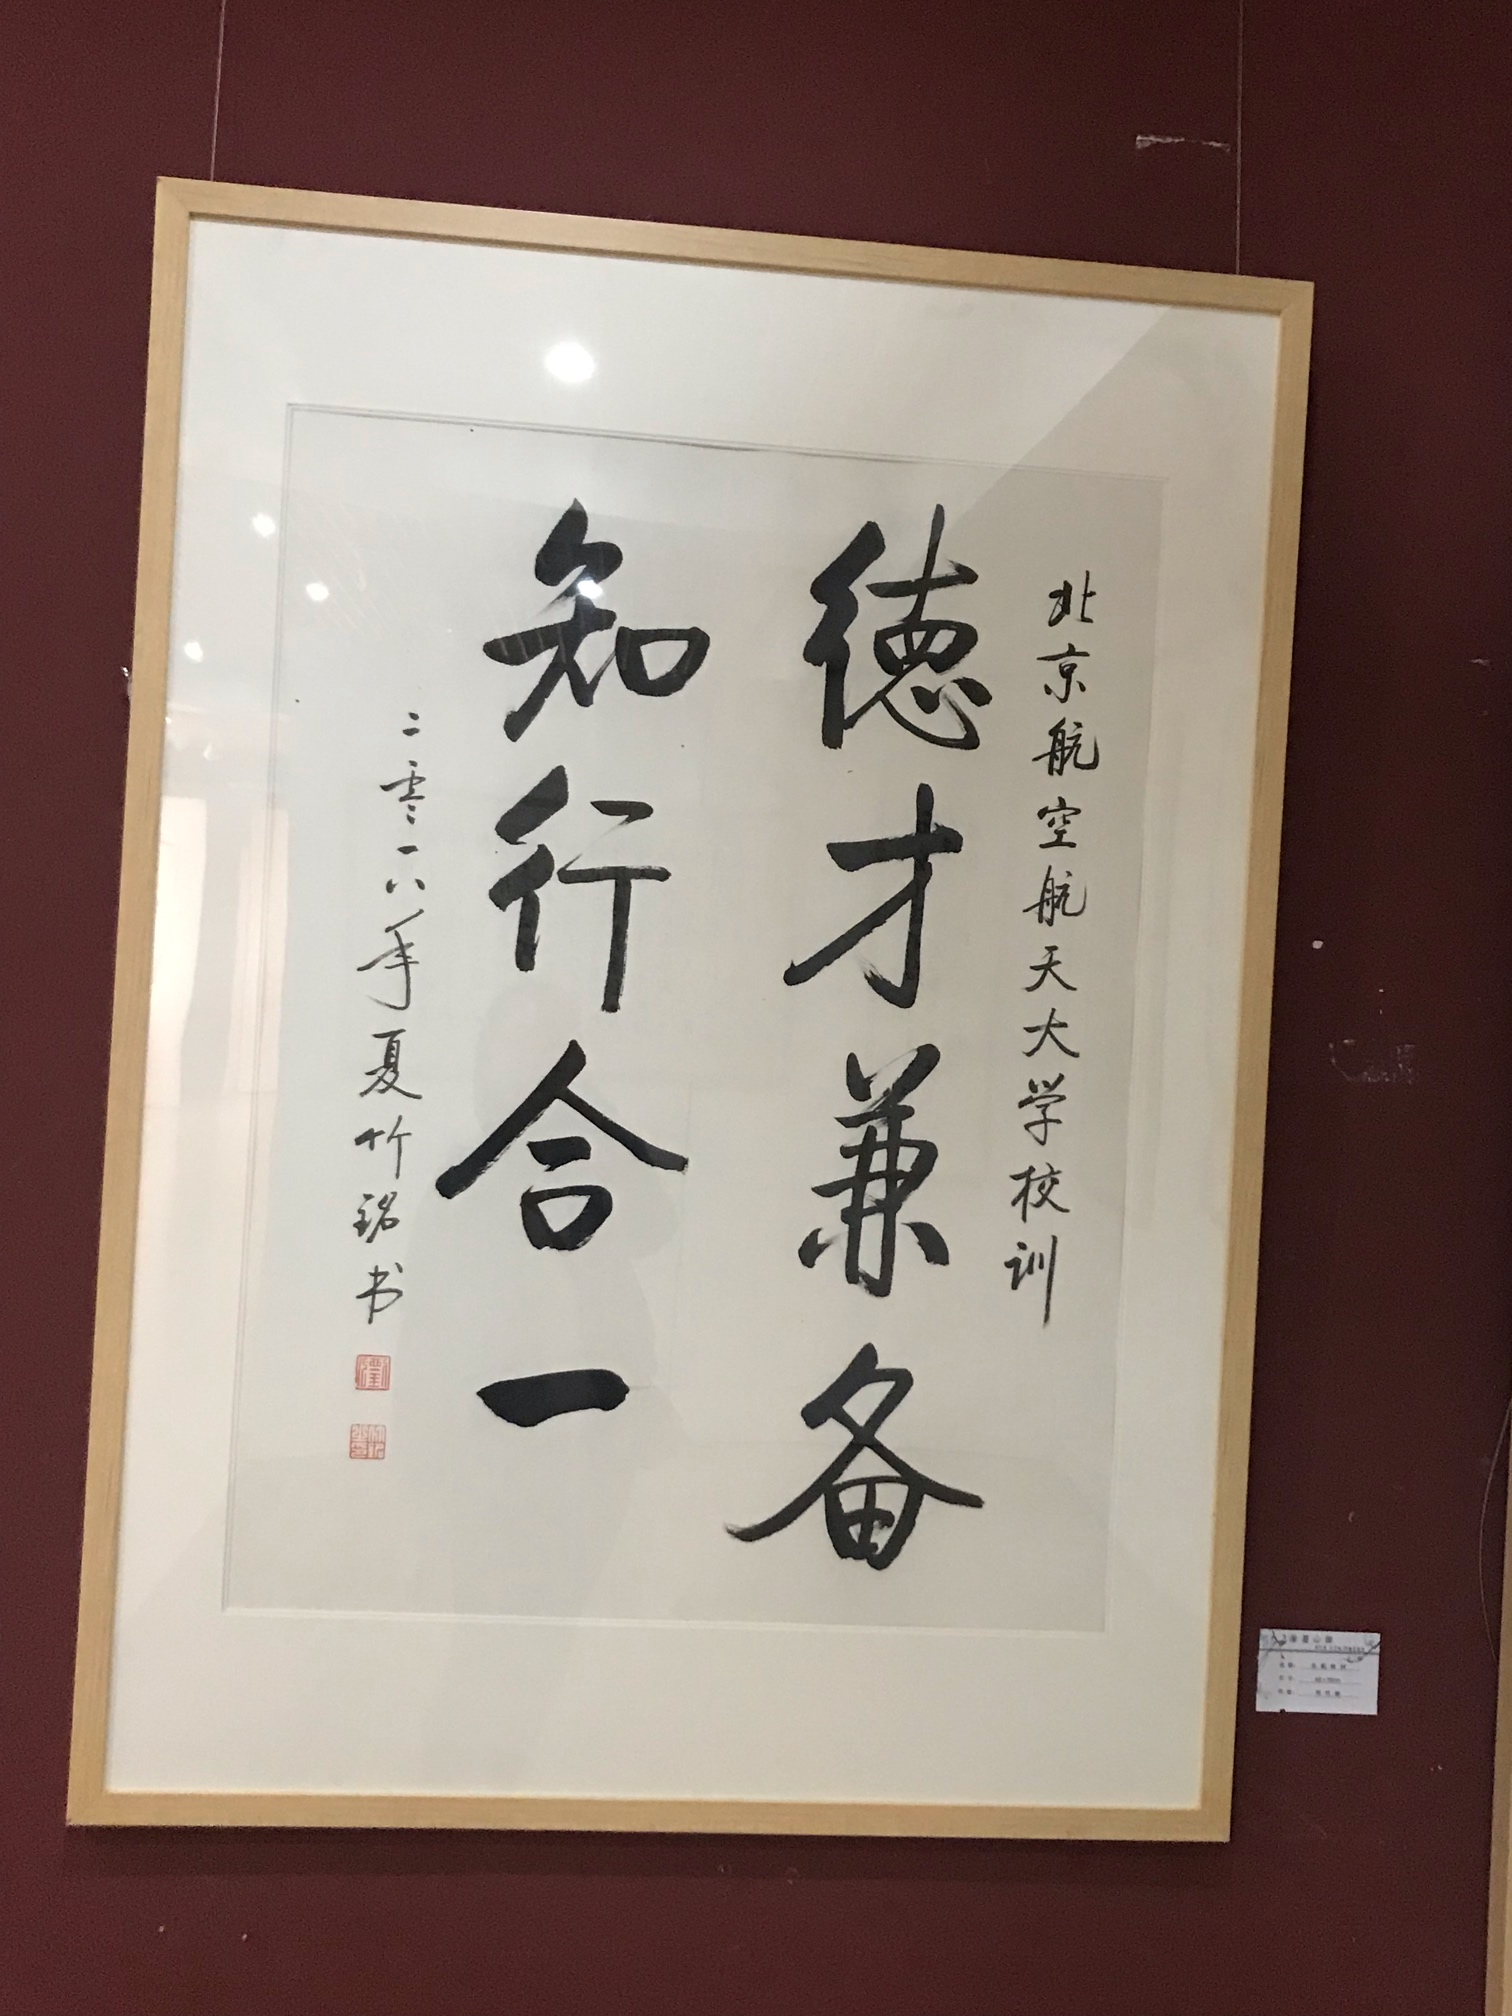 北京航空航天大学校训
德才兼备
知行合一
二零一八年夏竹铭书